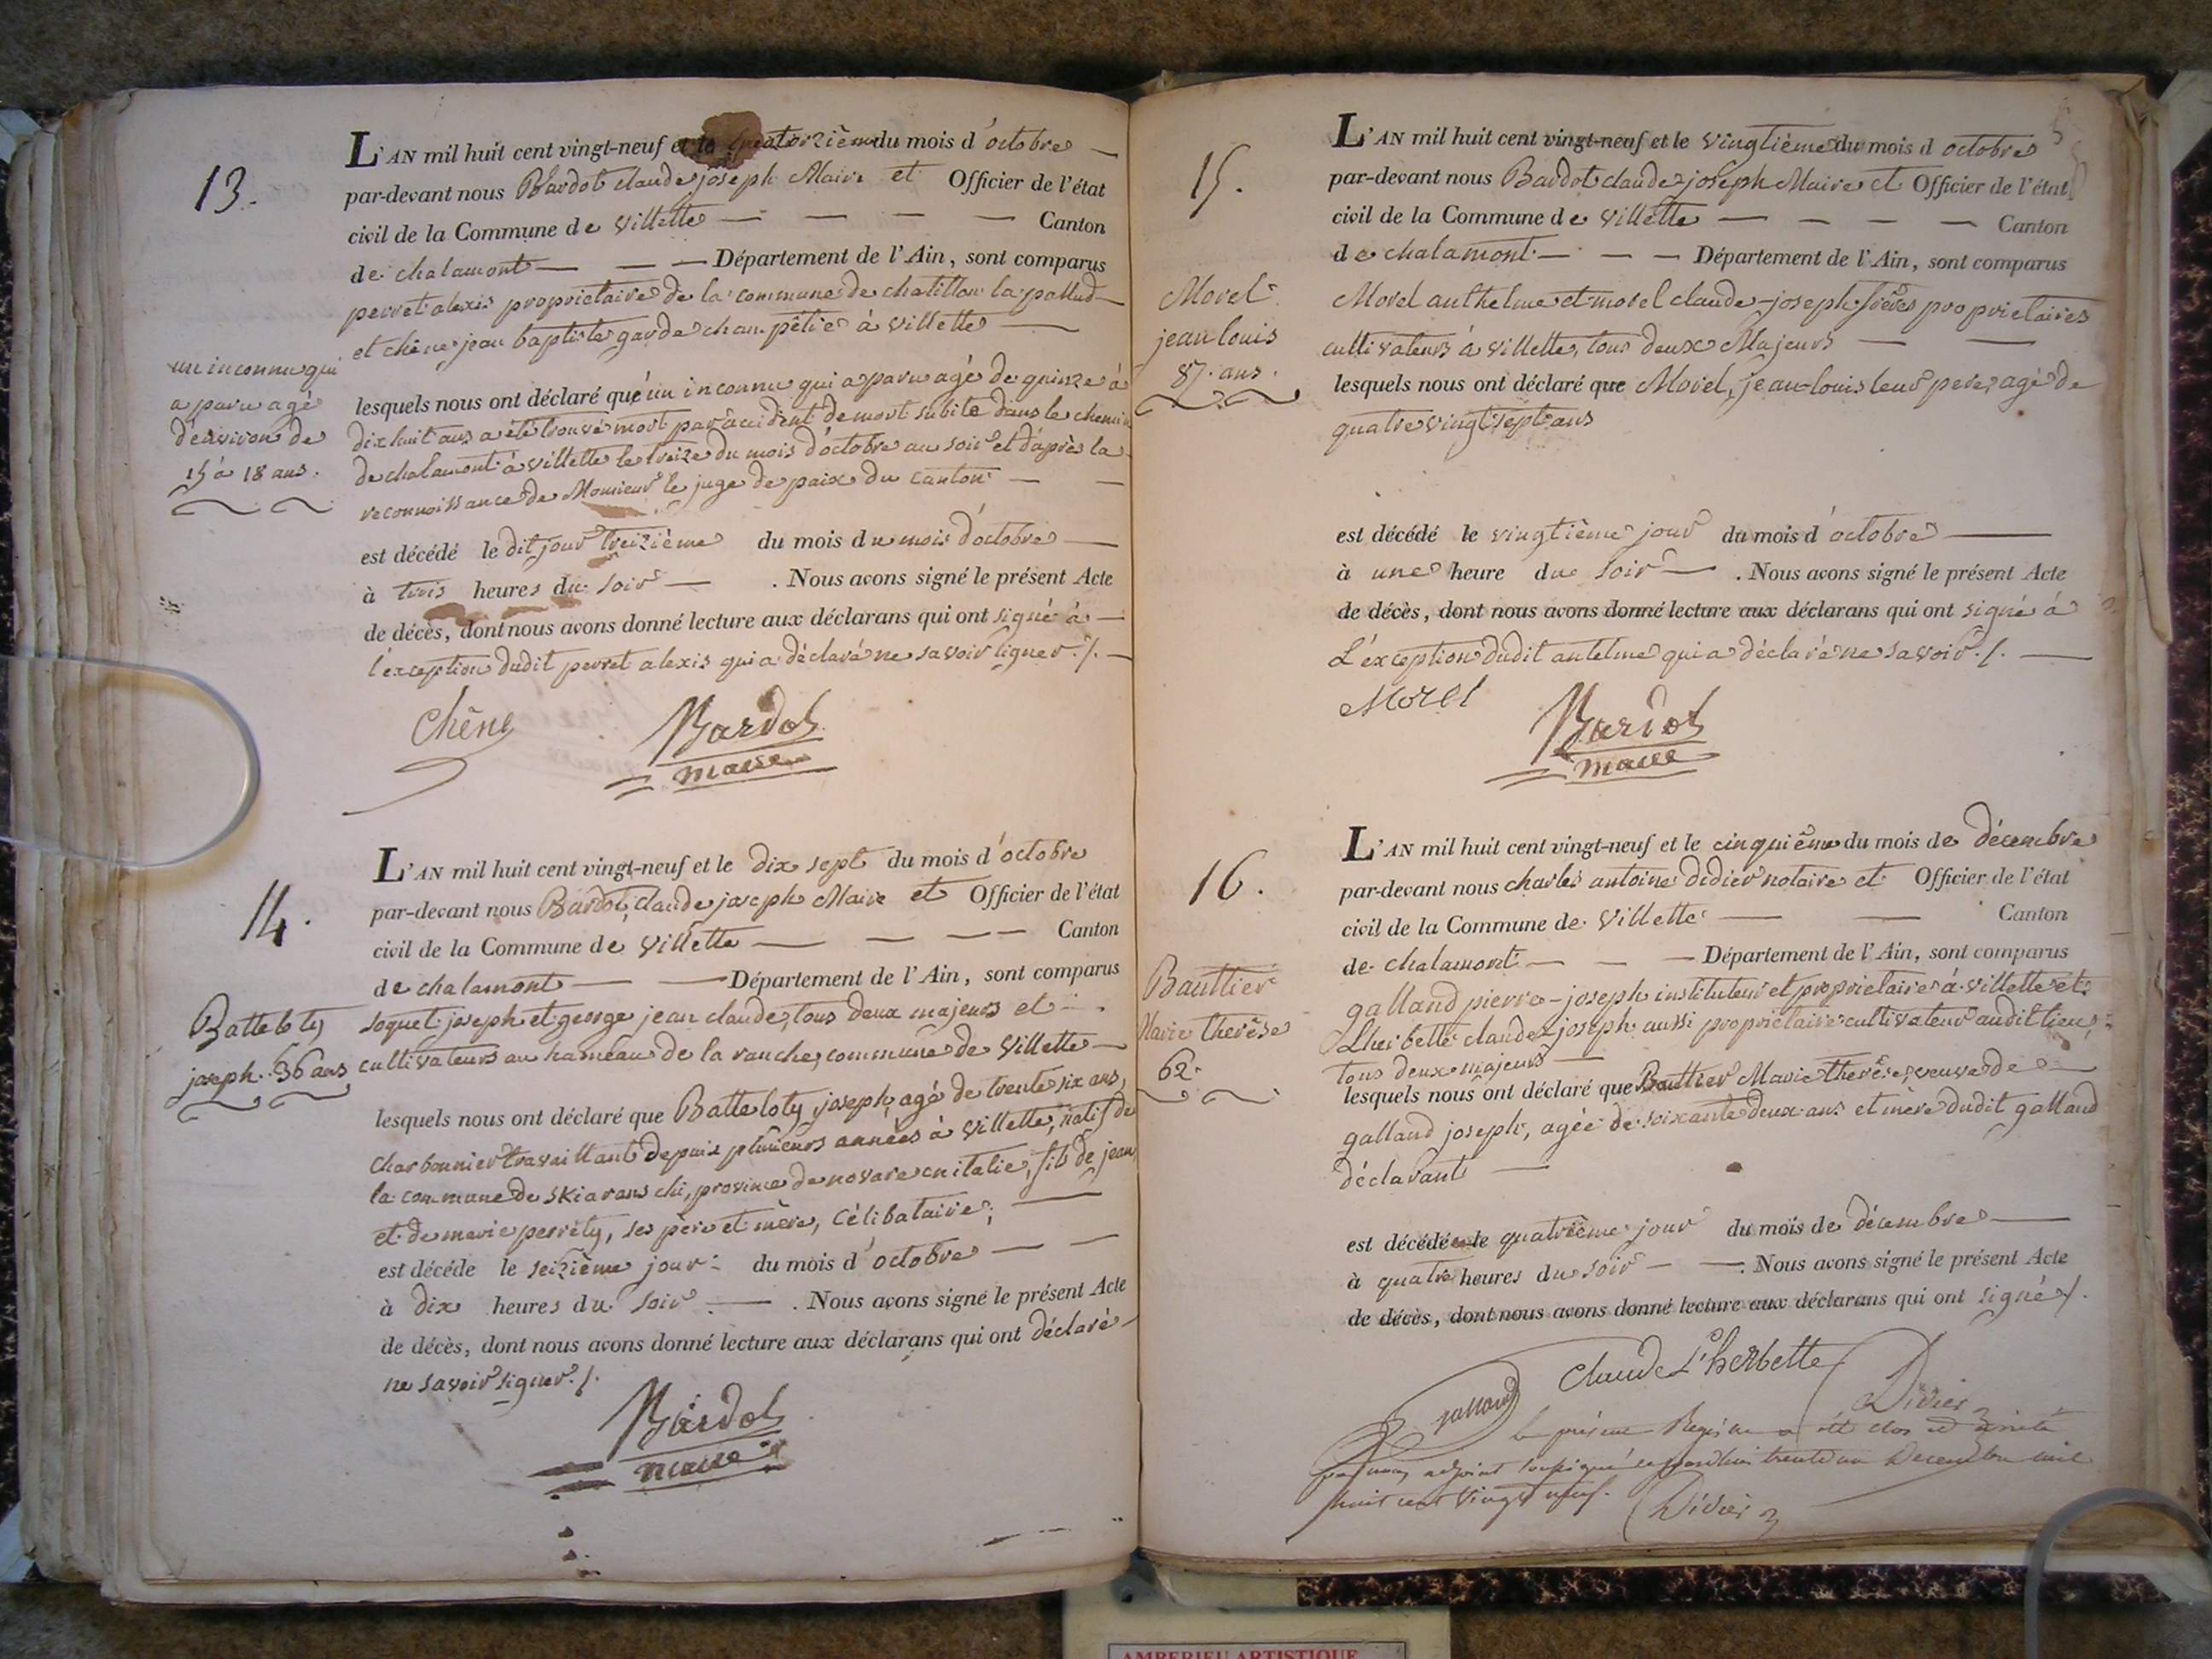 13.
L'AN mil huit cent vingt-neuf et le quatorzième du mois d'octobre
par-devant nous Bardot claude joseph Maire et Officier de l'état
civil de la Commune de villette Canton
de chalamont Département de l'Ain, sont comparus
perret alexis proprietaire de la commune de chatillon la pallud
et chêne jean baptiste garde champêtre à villette
un inconnu qui
a paru agé
d'environ de
15 à 18 ans.
lesquels nous ont déclaré qu'un inconnu qui a paru agé de quinze à
dix huit ans a été trouvé mort par accident de mort subite dans le chemin
de chalamont à villette le treize du mois d'octobre au soir et d'après la
reconnoissance de Monsieur le juge de paix du canton
est décédé le dit jour treizième du mois du mois d'octobre
à trois heures du soir. Nous avons signé le présent Acte
de décès, dont nous avons donné lecture aux déclarans qui ont signé à
l'exception dudit perret alexis qui a déclaré ne savoir signer./.
Chêne
Bardot
maire
14.
L'AN mil huit cent vingt-neuf et le dix sept du mois d'octobre
par-devant nous Bardot, claude joseph Maire et Officier de l'état
civil de la Commune de villette Canton
de chalamont Département de l'Ain, sont comparus
soquet joseph et george jean claude, tous deux majeurs et
cultivateurs au hameau de la ranche, commune de villette
Batteloty
joseph. 36 ans
lesquels nous ont déclaré que Batteloty joseph, agé de trente six ans,
charbonnier travaillant depuis plusieurs années à villette, natif de
la commune de skiaranschi, province de novare en italie, fils de jean
et de marie perréty, ses père et mère, célibataire;
est décédé le seizième jour du mois d'octobre
à dix heures du soir. Nous avons signé le présent Acte
de décès, dont nous avons donné lecture aux déclarans qui ont déclaré
ne savoir signer./.
Bardot
maire
15.
L'AN mil huit cent vingt-neuf et le vingtième du mois d octobre
par-devant nous Bardot claude-joseph Maire et Officier de l'état
civil de la Commune de villette Canton
de chalamont Département de l'Ain, sont comparus
Morel
jean louis
87. ans.
Morel anthelme et morel claude-joseph frères proprietaires
cultivateurs à villette, tous deux Majeurs
lesquels nous ont déclaré que Morel, jean-louis leur pere, agé de
quatre vingt sept ans
est décédé le vingtième jour du mois d'octobre
à une heure du soir. Nous avons signé le présent Acte
de décès, dont nous avons donné lecture aux déclarans qui ont signé à
L'exception dudit antelme qui a déclaré ne savoir./.
Morel
Bardot
maire
16.
L'AN mil huit cent vingt-neuf et le cinquième du mois de décembre
par-devant nous charles antoine didier notaire et Officier de l'état
civil de la Commune de villette Canton
de chalamont Département de l'Ain, sont comparus
Bauttier
Marie therèse
62.
galland pierre-joseph instituteur et proprietaire à villette et
Lherbette claude-joseph aussi proprietaire cultivateur audit lieu,
tous deux majeurs
lesquels nous ont déclaré que Bauttier Marie therèse, veuve de
galland joseph, agée de soixante deux ans et mère dudit galland
déclarant
est décédée le quatrième jour du mois de décembre
à quatre heures du soir. Nous avons signé le présent Acte
de décès, dont nous avons donné lecture aux déclarans qui ont signé./.
Claude L'herbette
galland
Didier
Le présent Registre a été clos et arrêté
par nous adjoint soussigné ce jourdhui trente un Decembre mil
huit cent vingt neuf.
Didier
AMBERIEU ARTISTIQUE